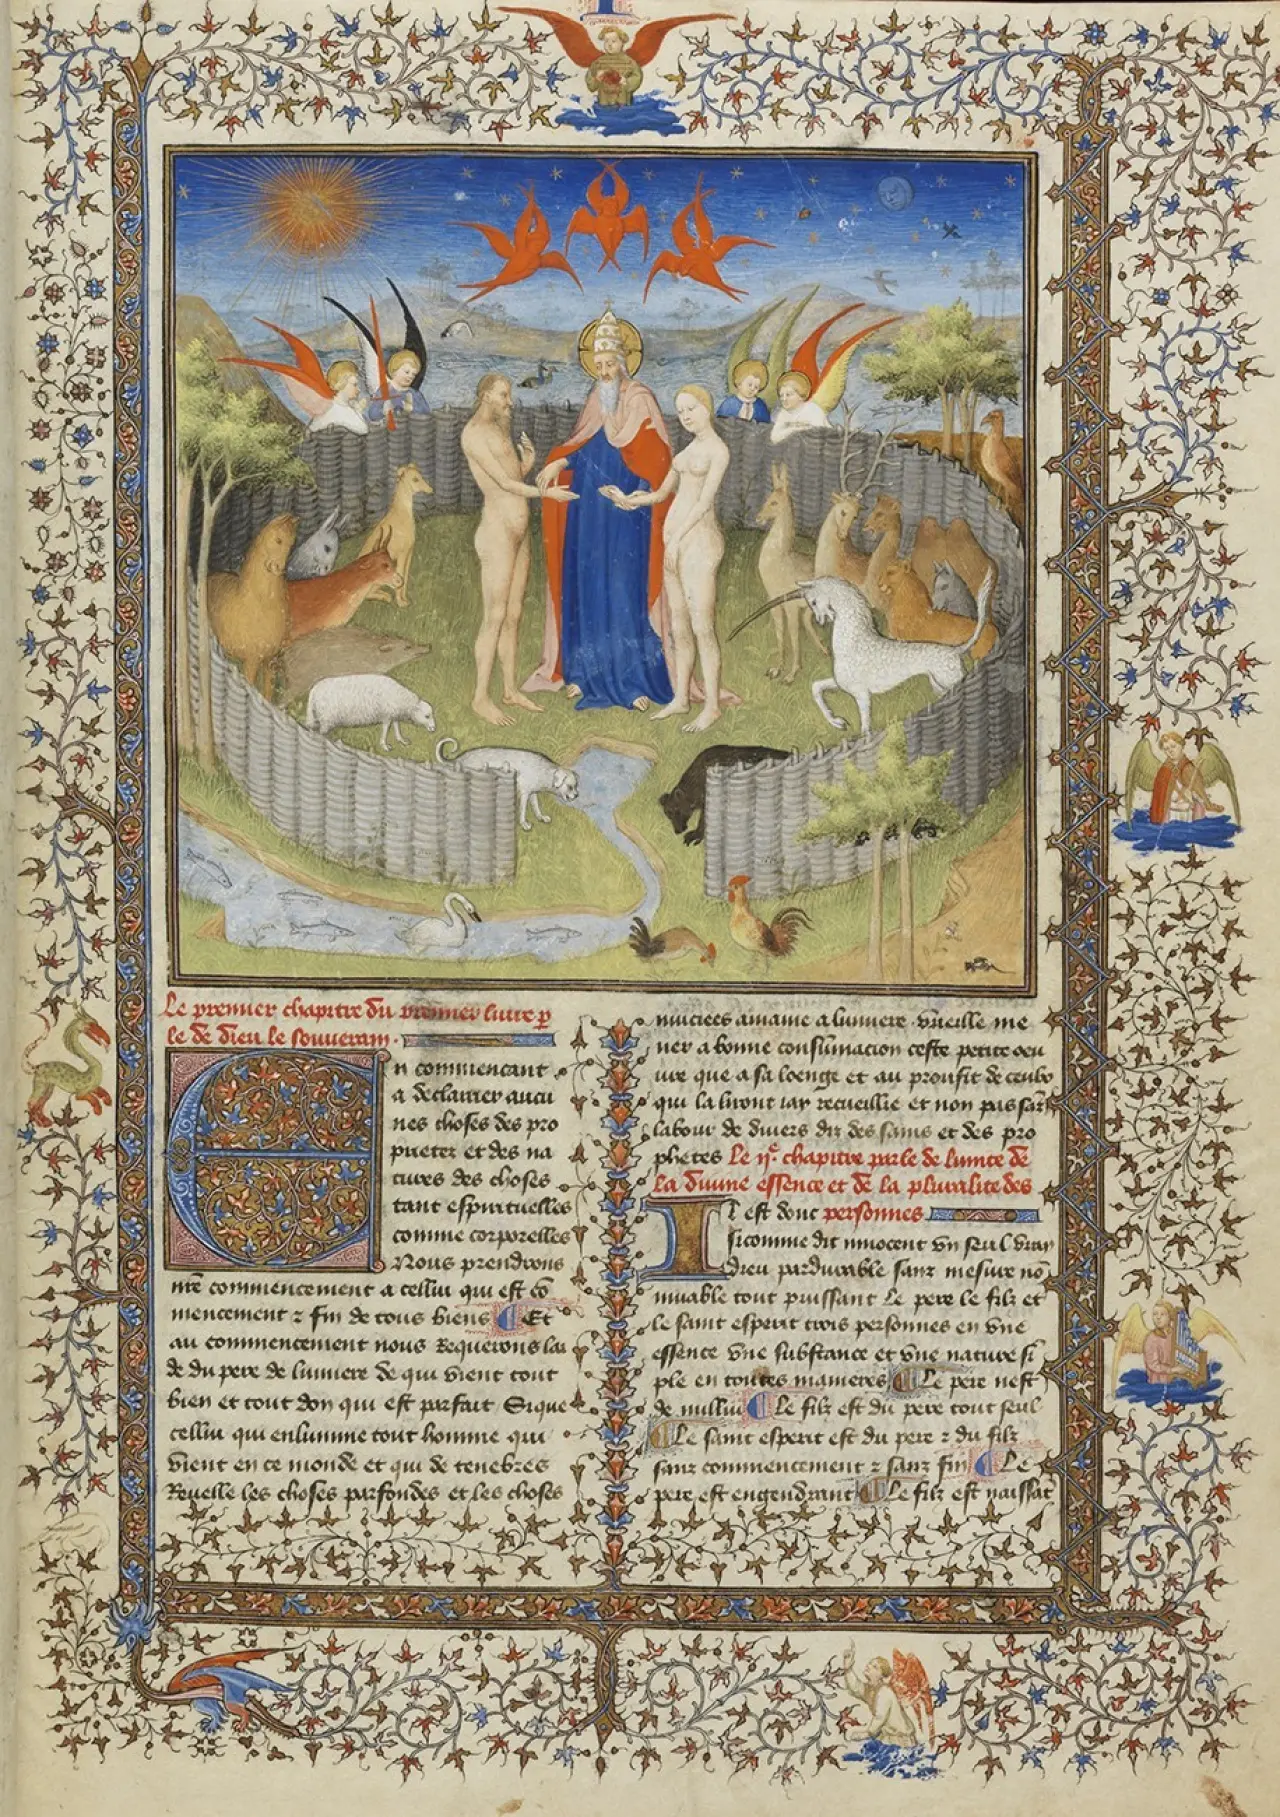 Le premier chapitre du premier liure p
le de dieu le souuerain.
En commencant
a declairer aucu
nes choses des pro
prietez et des na
tures des choses
tant espirituelles
comme corporelles
Nous prendrons
nr̃e commencement a cellui qui est cõ
mencement ⁊ fin de tous biens Et
au commencement nous Requerons lai
de du pere de lumiere de qui vient tout
bien et tout don qui est parfait Si que
cellui qui enlumine tout homme qui
vient en ce monde et qui de tenebres
Reuelle les choses parfondes et les choses
muciees amaine a lumiere. vueille me
ner a bonne consũmacion ceste petite oeu
ure que a sa loenge et au proufit de ceulx
qui la liront iay recueillie et non pas sanz
labour de diuers diz des sains et des pro
phetes Le ije. chapitre parle de lunite de
la diuine essence et de la pluralite des
Il est donc personnes
sicomme dit innocent vn seul vray
dieu pardurable sanz mesure nõ
muable tout puissant Le pere le filz et
le saint esperit trois personnes en vne
essence vne substance et vne nature sĩ
ple en toutes manieres Le pere nest
de nullui Le filz est du pere tout seul
Le saint esperit est du pere ⁊ du filz
sanz commencement ⁊ sanz fin Le
pere est engendrant Le filz est naissãt